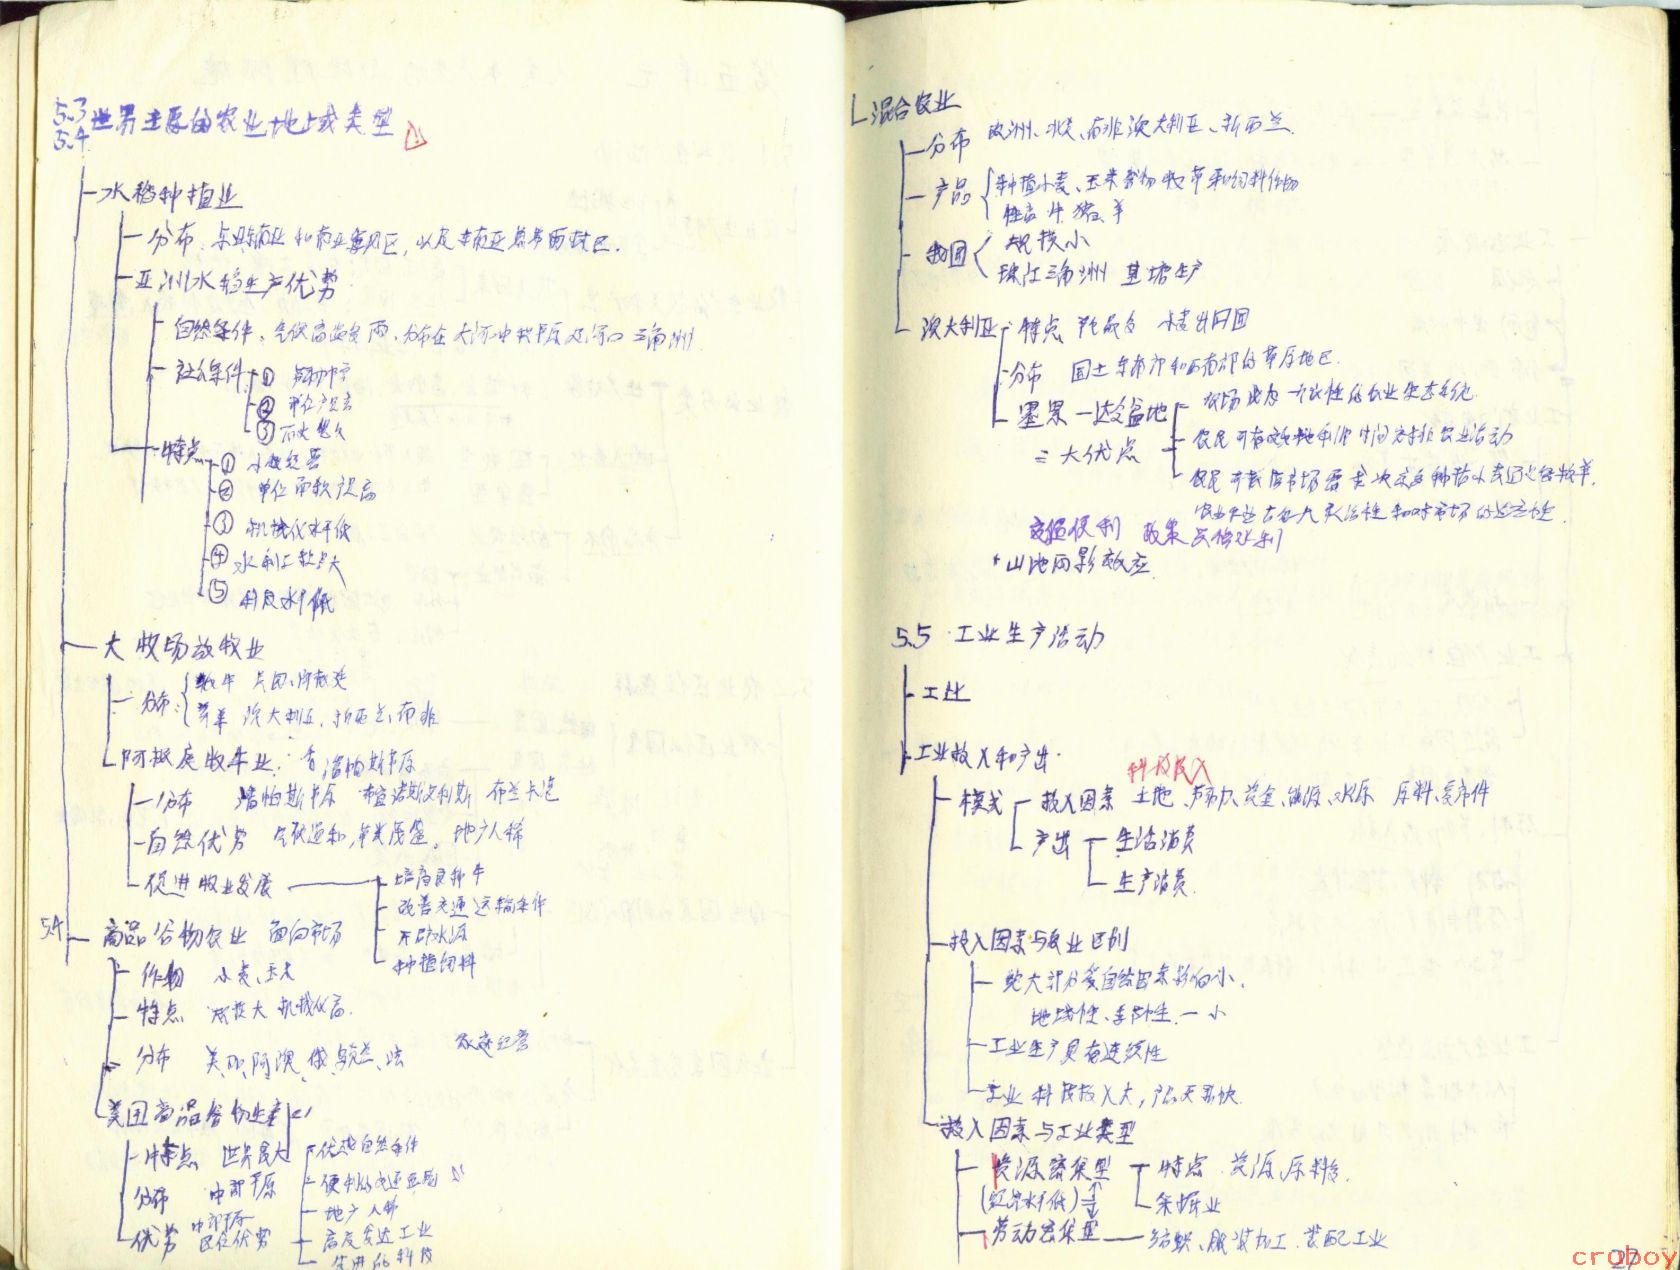 5.3
5.4 世界主要的农业地域类型
水稻种植业
分布: 东亚东南亚和南亚季风区, 以及东南亚热带雨林区.
亚洲水稻生产优势
自然条件, 气候高温多雨, 分布在大河中下平原及河口三角洲
社会条件 ①
② 单位产
③ 历史悠久
特点 ① 小农经营
② 单位面积产高
③ 机械化水平低
④ 水利工程量大
⑤ 科技水平低
大牧场放牧业
分布: 牧牛 美国、阿根廷
牧羊 澳大利亚、新西兰、南非
阿根廷牧牛业: 潘帕斯草原
分布 潘帕斯草原 布宜诺斯艾利斯 布兰卡港
自然优势 气候温和, 草类茂盛。地广人稀
促进牧业发展 培育良种牛
改善交通运输条件
开辟水源
种植饲料
5.4 商品谷物农业 面向市场
作物 小麦、玉米
特点 规模大 机械化高.
家庭经营
分布 美、加、阿、澳、俄、乌克兰、法
美国商品谷物生产
特点 世界最大
分布 中部平原
优势 中部平原
区位优势
优越自然条件
便利的交通运输
地广人稀
高度发达工业
先进的科技
混合农业
分布 欧洲、北美、南非、澳大利亚、新西兰.
产品 种植小麦、玉米谷物牧草和饲料作物
牲畜 牛、猪、羊
我国 规模小
珠江三角洲 基塘生产
澳大利亚 特点 小麦出口国
分布 国土东南部和西南部的草原地区.
墨累—达令盆地 农场成为一个良性的农业生态系统
三大优点 农民可有效地利用时间安排农业活动
农民可根据市场需求决定多种植小麦还是牧羊.
农业生产有很大灵活性和对市场的适应性
交通便利 政策兴修水利
*山地雨影效应
5.5 工业生产活动
工业
工业投入和产出.
科技投入
模式 投入因素 土地、劳动力、资金、能源、水源 原料、零件
产出 生活消费
生产消费.
投入因素与农业区别
绝大部分受自然因素影响小.
地域性、季节性.—小
工业生产具有连续性
工业科技投入大, 发展快
投入因素与工业类型
资源密集型 特点 资源、原料多.
(经济水平低) 采掘业
劳动密集型 纺织、服装加工. 装配工业
27
croboy